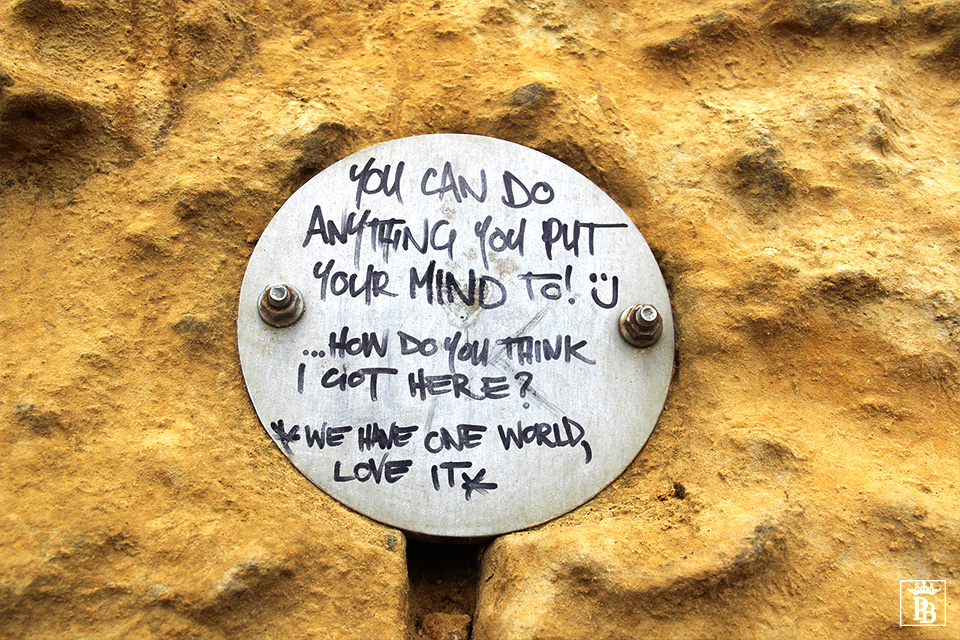 YOU CAN DO
ANYTHING YOU PUT
YOUR MIND TO! Ü
...HOW DO YOU THINK
I GOT HERE?
*WE HAVE ONE WORLD,
LOVE IT*
PB